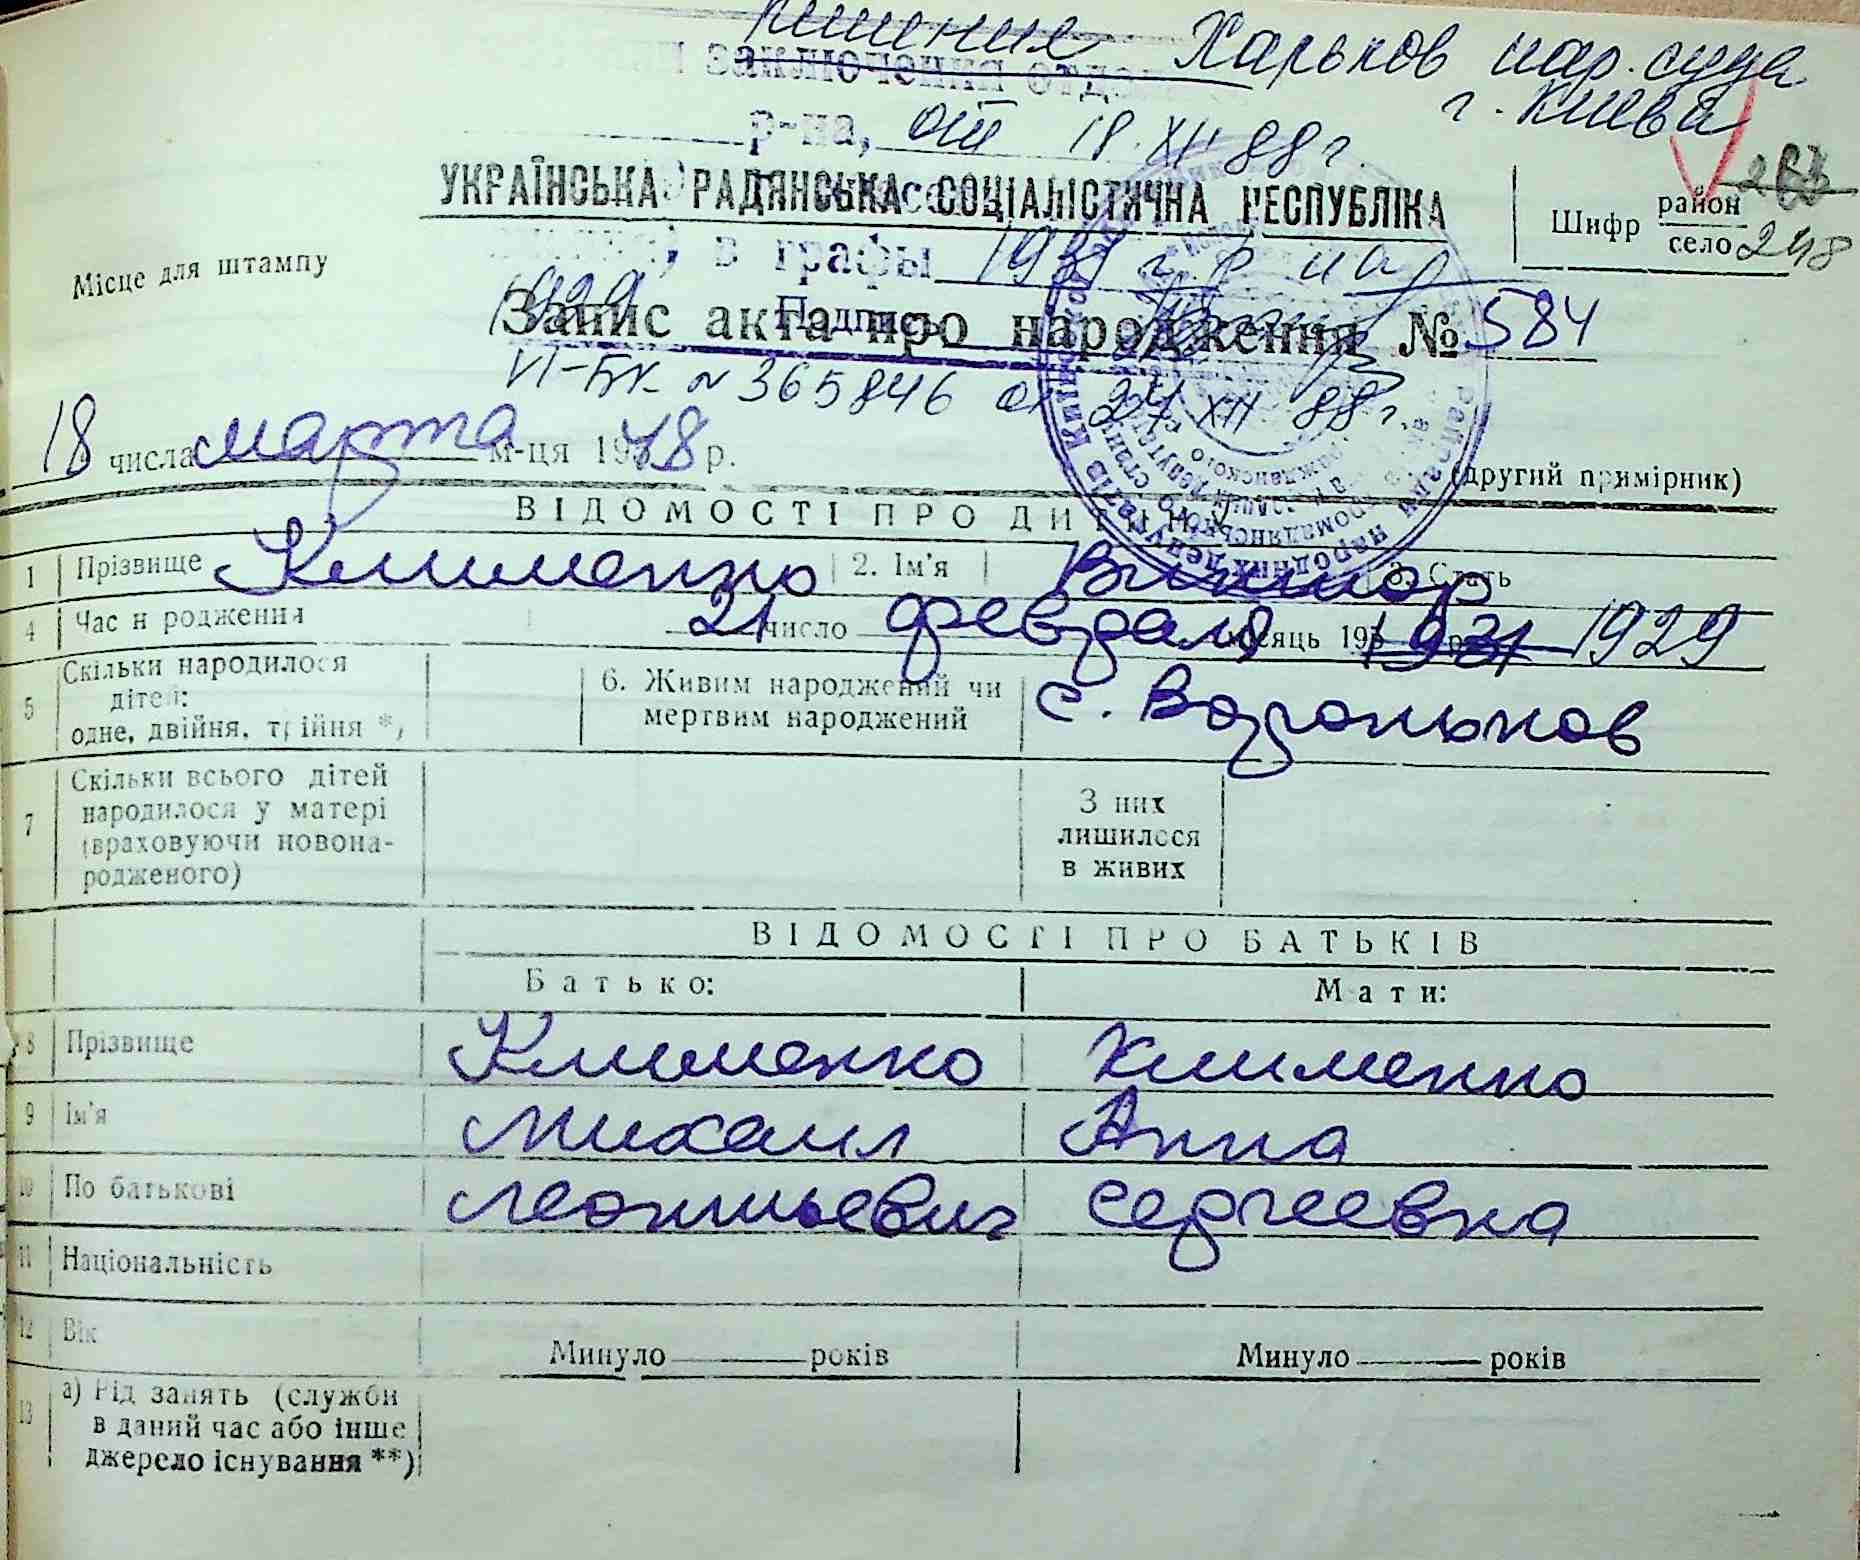 решения Харьков нар. суда
заключения отде
г. Киева
р-на, от 18.XII 88 г.
263
УКРАЇНСЬКА РАДЯНСЬКА СОЦІАЛІСТИЧНА РЕСПУБЛІКА
Шифр район
село 248
Місце для штампу
в графы 1931 г.р. на
1929
Подпись
Запис акта про народження № 584
VI-БК № 365846 от 24 XII 88 г.
18 числа марта м-ця 1948 р.
(другий примірник)
ВІДОМОСТІ ПРО ДИТИНУ
1 Прізвище Клименко 2. Ім'я Виктор 3. Стать
4 Час народження 21 число февраля місяць 195 1931 р. 1929
5 Скільки народилося дітей: одне, двійня, трійня *)
6. Живим народжений чи мертвим народжений с. Вороньков
7 Скільки всього дітей народилося у матері (враховуючи новонародженого)
З них лишилося в живих
ВІДОМОСТІ ПРО БАТЬКІВ
Батько: Мати:
8 Прізвище Клименко Клименко
9 Ім'я Михаил Анна
10 По батькові Леонтьевич Сергеевна
11 Національність
12 Вік Минуло років Минуло років
13 а) Рід занять (служби
в даний час або інше
джерело існування **)